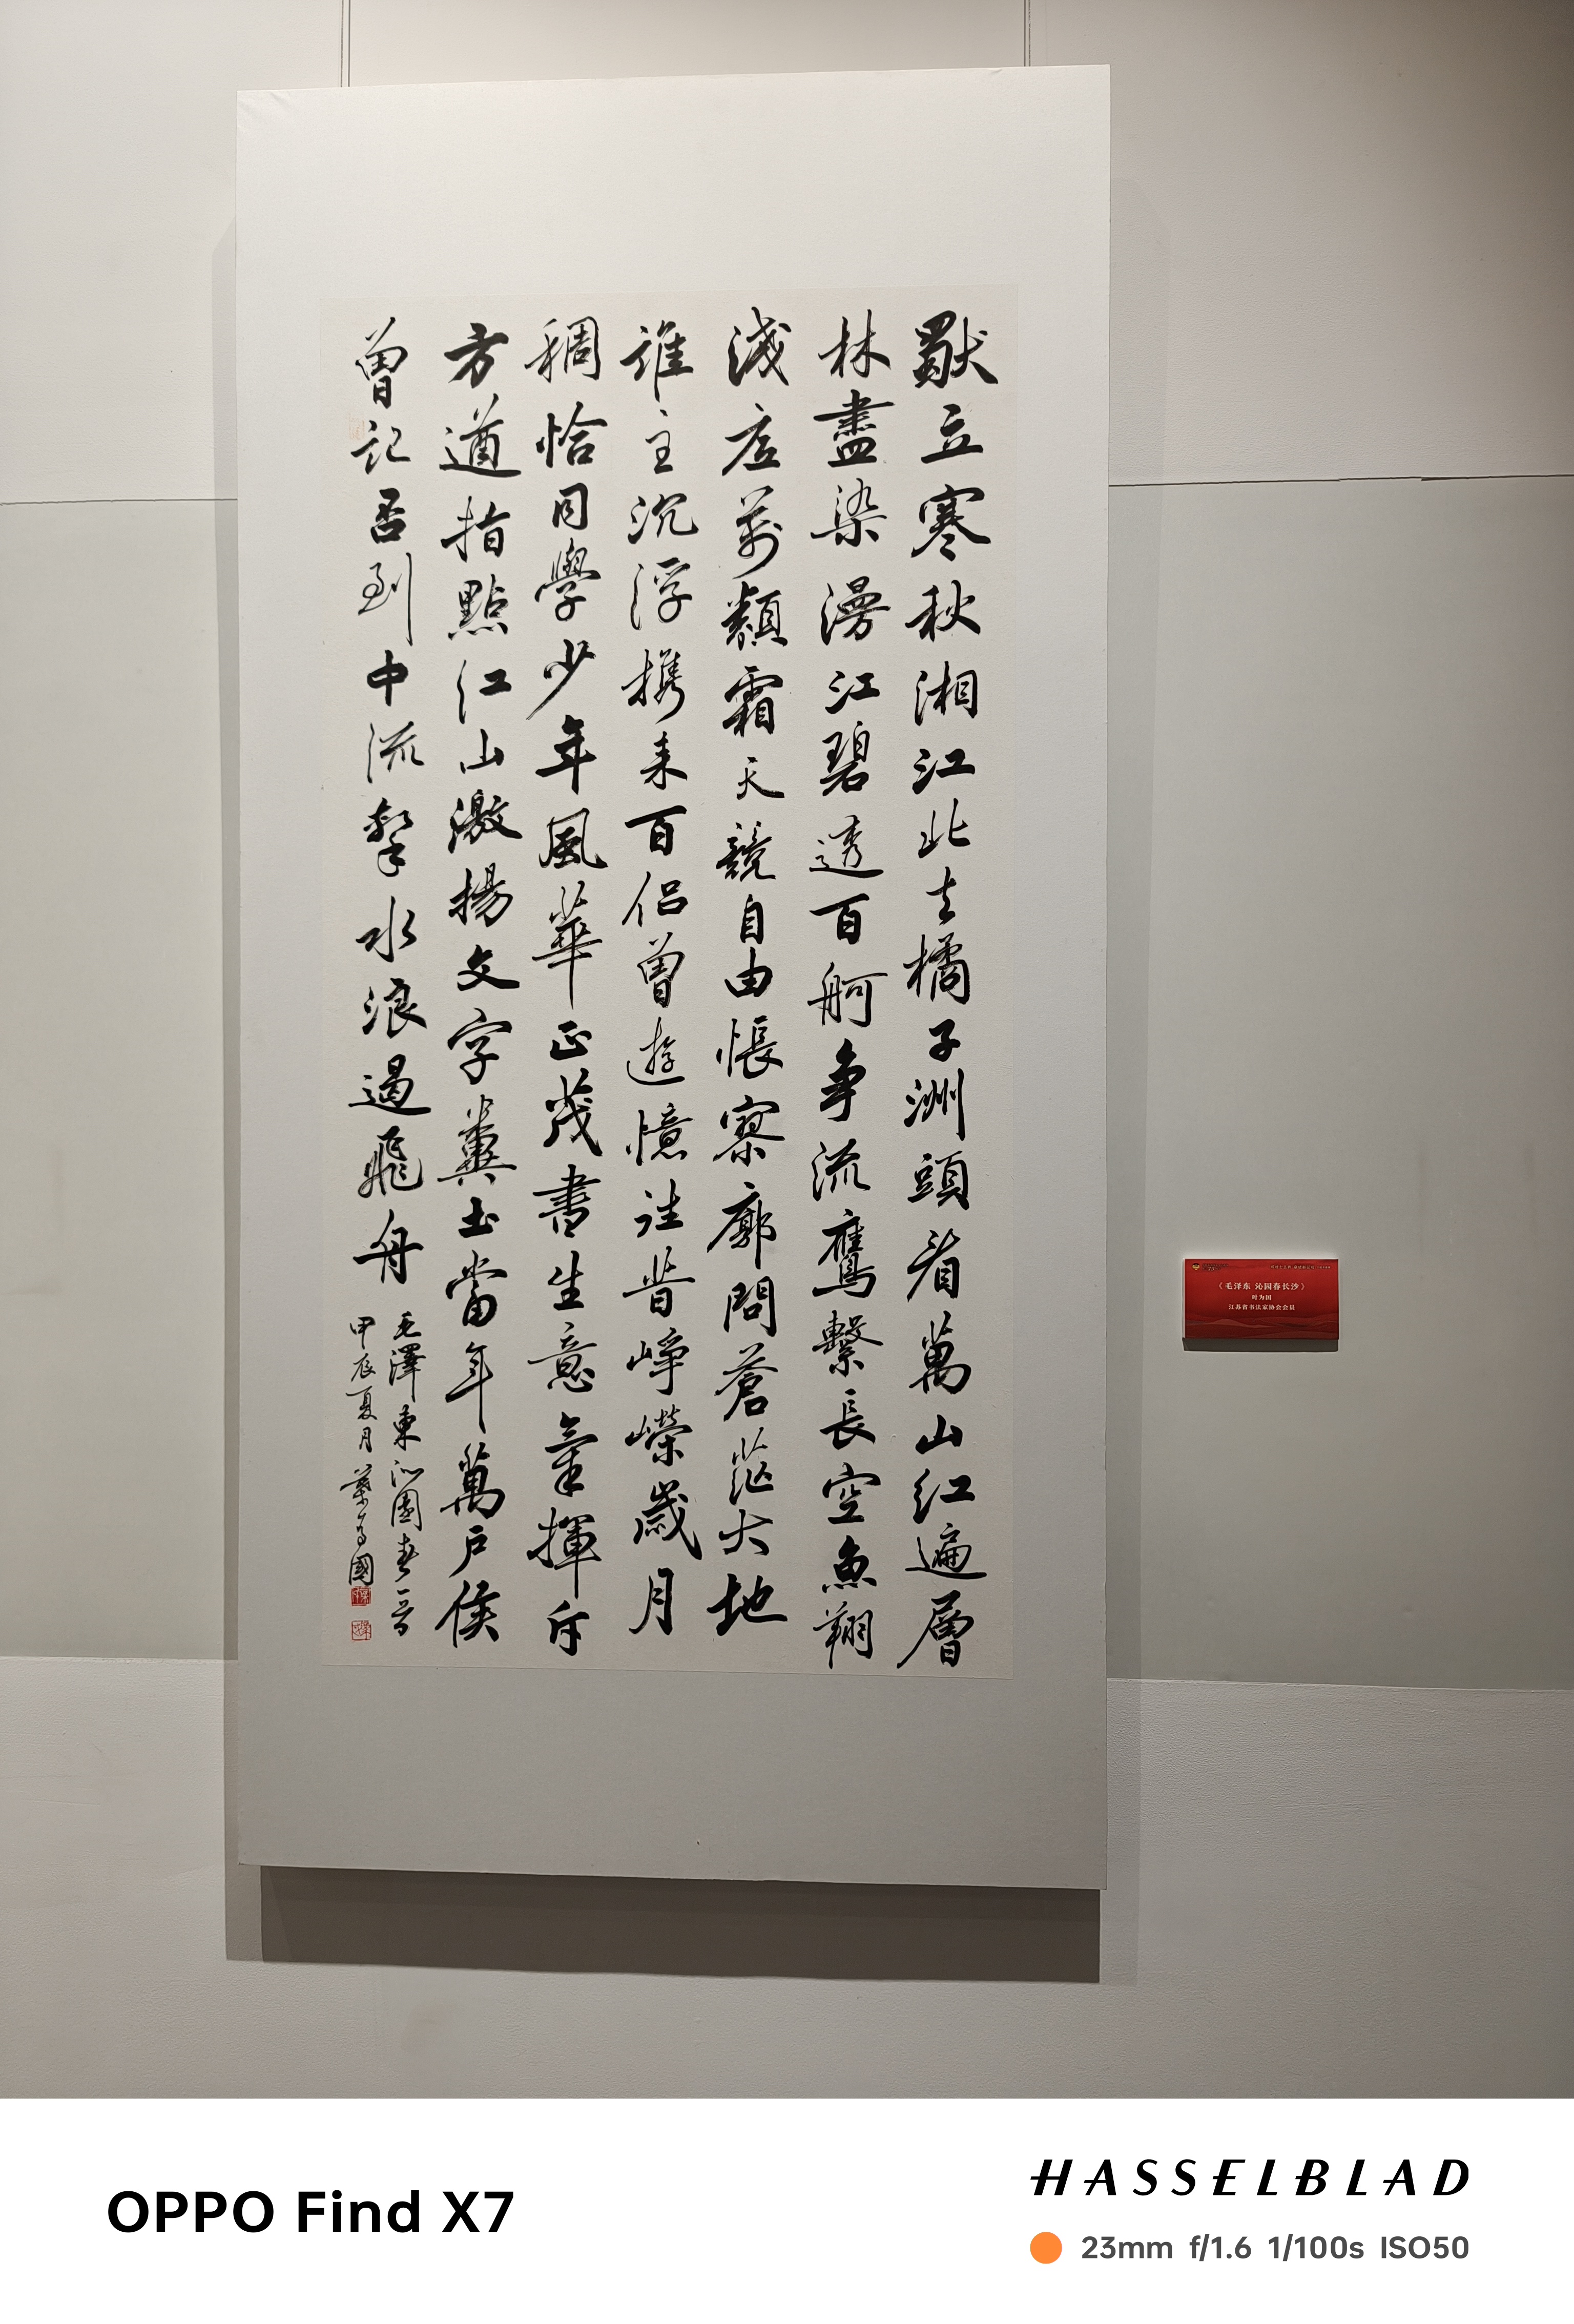 獨立寒秋湘江北去橘子洲頭看萬山紅遍層
林盡染漫江碧透百舸爭流鷹繫長空魚翔
淺底萬類霜天競自由悵寥廓問蒼茫大地
誰主沉浮携来百侣曾遊憶往昔崢嶸歲月
稠恰同學少年風華正茂書生意氣揮斥
方遒指點江山激揚文字糞土當年萬户侯
曾記否到中流擊水浪遏飛舟
毛澤東沁園春一首
甲辰夏月葉為國
《毛泽东 沁园春长沙》
叶为国
江苏省书法家协会会员
OPPO Find X7
HASSELBLAD
23mm f/1.6 1/100s ISO50